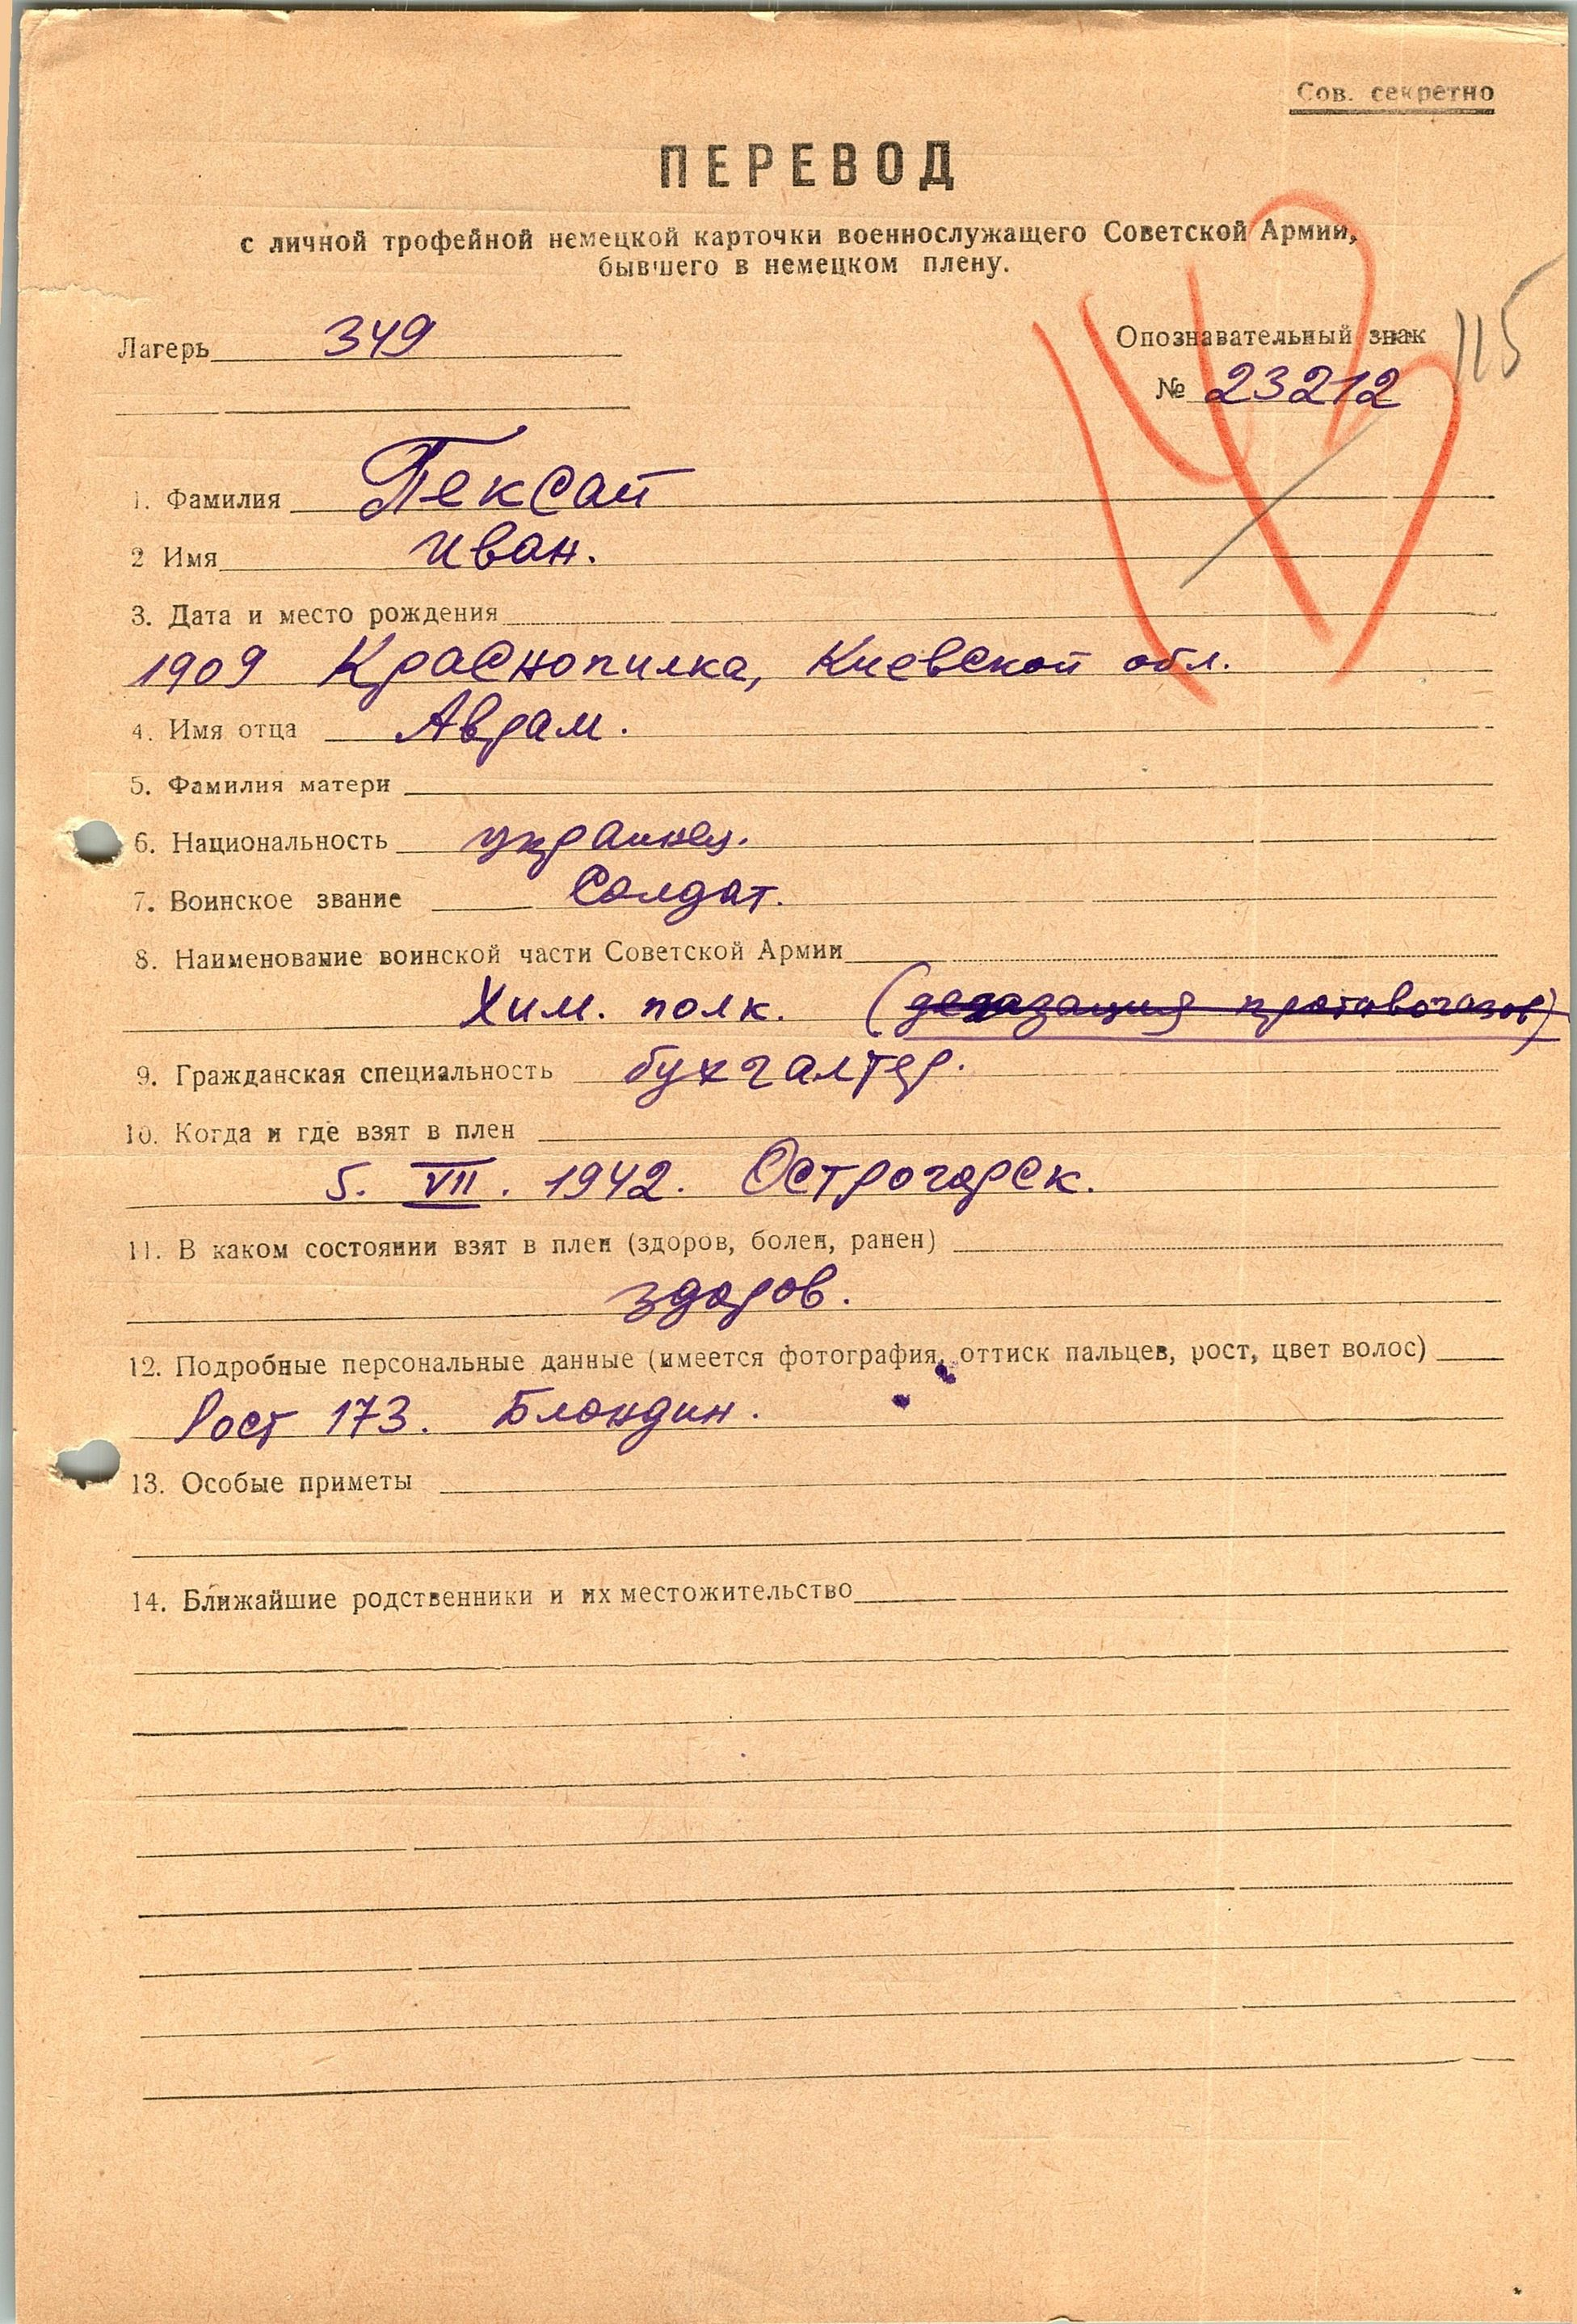 Сов. секретно
ПЕРЕВОД
с личной трофейной немецкой карточки военнослужащего Советской Армии,
бывшего в немецком плену.
115
Лагерь 349
Опознавательный знак
№ 23212
1. Фамилия Пексай
2 Имя Иван.
3. Дата и место рождения
1909 Краснопилка, Киевской обл.
4. Имя отца Авдам.
5. Фамилия матери
6. Национальность украинец.
7. Воинское звание Солдат.
8. Наименование воинской части Советской Армии
Хим. полк. (дегазация противогазов)
9. Гражданская специальность бухгалтер.
10. Когда и где взят в плен
5. VII. 1942. Острогорск.
11. В каком состоянии взят в плен (здоров, болен, ранен)
здоров.
12. Подробные персональные данные (имеется фотография, оттиск пальцев, рост, цвет волос)
Рост 173. Блондин.
13. Особые приметы
14. Ближайшие родственники и их местожительство